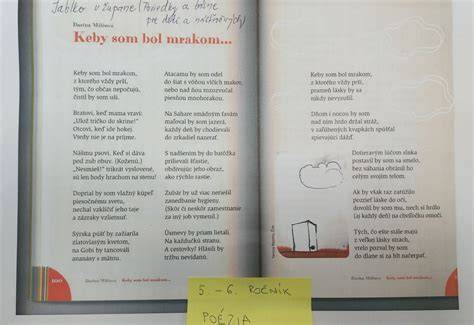 Jablko v župane (Poviedky a básne
pre deti a
Darina Miľová
Keby som bol mrakom...
Keby som bol mrakom,
z ktorého vždy prší,
tým, čo občas nepočujú,
čistil by som uši.
Bratovi, keď mama vraví:
"Ulož tričko do skrine!"
Otcovi, keď ide hokej.
Vtedy nie je na príjme.
Nášmu psovi. Keď si dáva
pod zub obuv. (Koženú.)
"Nesmieš!" trikrát vyslovené,
sú len hody hrachom na stenu!
Doprial by som vlažný kúpeľ
piesočnému svetu,
nechal vzklíčiť jeho taje
a zázraky vzlietnuť.
Sýrska púšť by zažiarila
zlatovlasým kvetom,
na Gobi by tancovali
ananásy s mätou.
Atacamu by som odel
do šiat s vôňou vlčích makov,
nebo nad ňou rozozvučal
piesňou mnohorakou.
Na Sahare smädným ťavám
maľoval by som jazerá,
každý deň by chodievali
do zrkadiel nazerať.
S nadšením by do batôžka
prilievali šťastie,
zbohatnúť by chcel ten obraz,
ako rýchlo rastie.
Zubár by už viac neriešil
zanedbanie hygieny.
(Skôr či neskôr zamestnanie
za iný job vymení.)
Úsmevy by priam lietali.
Na každučkú stranu.
A cestovky! Hlásili by
tržbu nevídanú.
Keby som bol mrakom,
z ktorého vždy prší,
prameň lásky by sa
nikdy nevysušil.
Dňom i nocou by som
nad ním hrdo držal stráž,
v zaľúbených kvapkách spúšťal
spievajúci dážď.
Doširavým lúčom slnka
postavil by som sa smelo,
bez váhania obránil ho
celým svojím telom.
Ak by však raz zatúžilo
pozrieť láske do očí,
dovolil by som mu, nech si hrdlo
(aj každý deň) na chvíľočku omočí.
Tých, čo ešte stále majú
z veľkej lásky strach,
vrelo pozval by som
do dúhového dažďa.
100
Darina Miľová Keby som bol mrakom...
5. - 6. ROČNÍK
POÉZIA